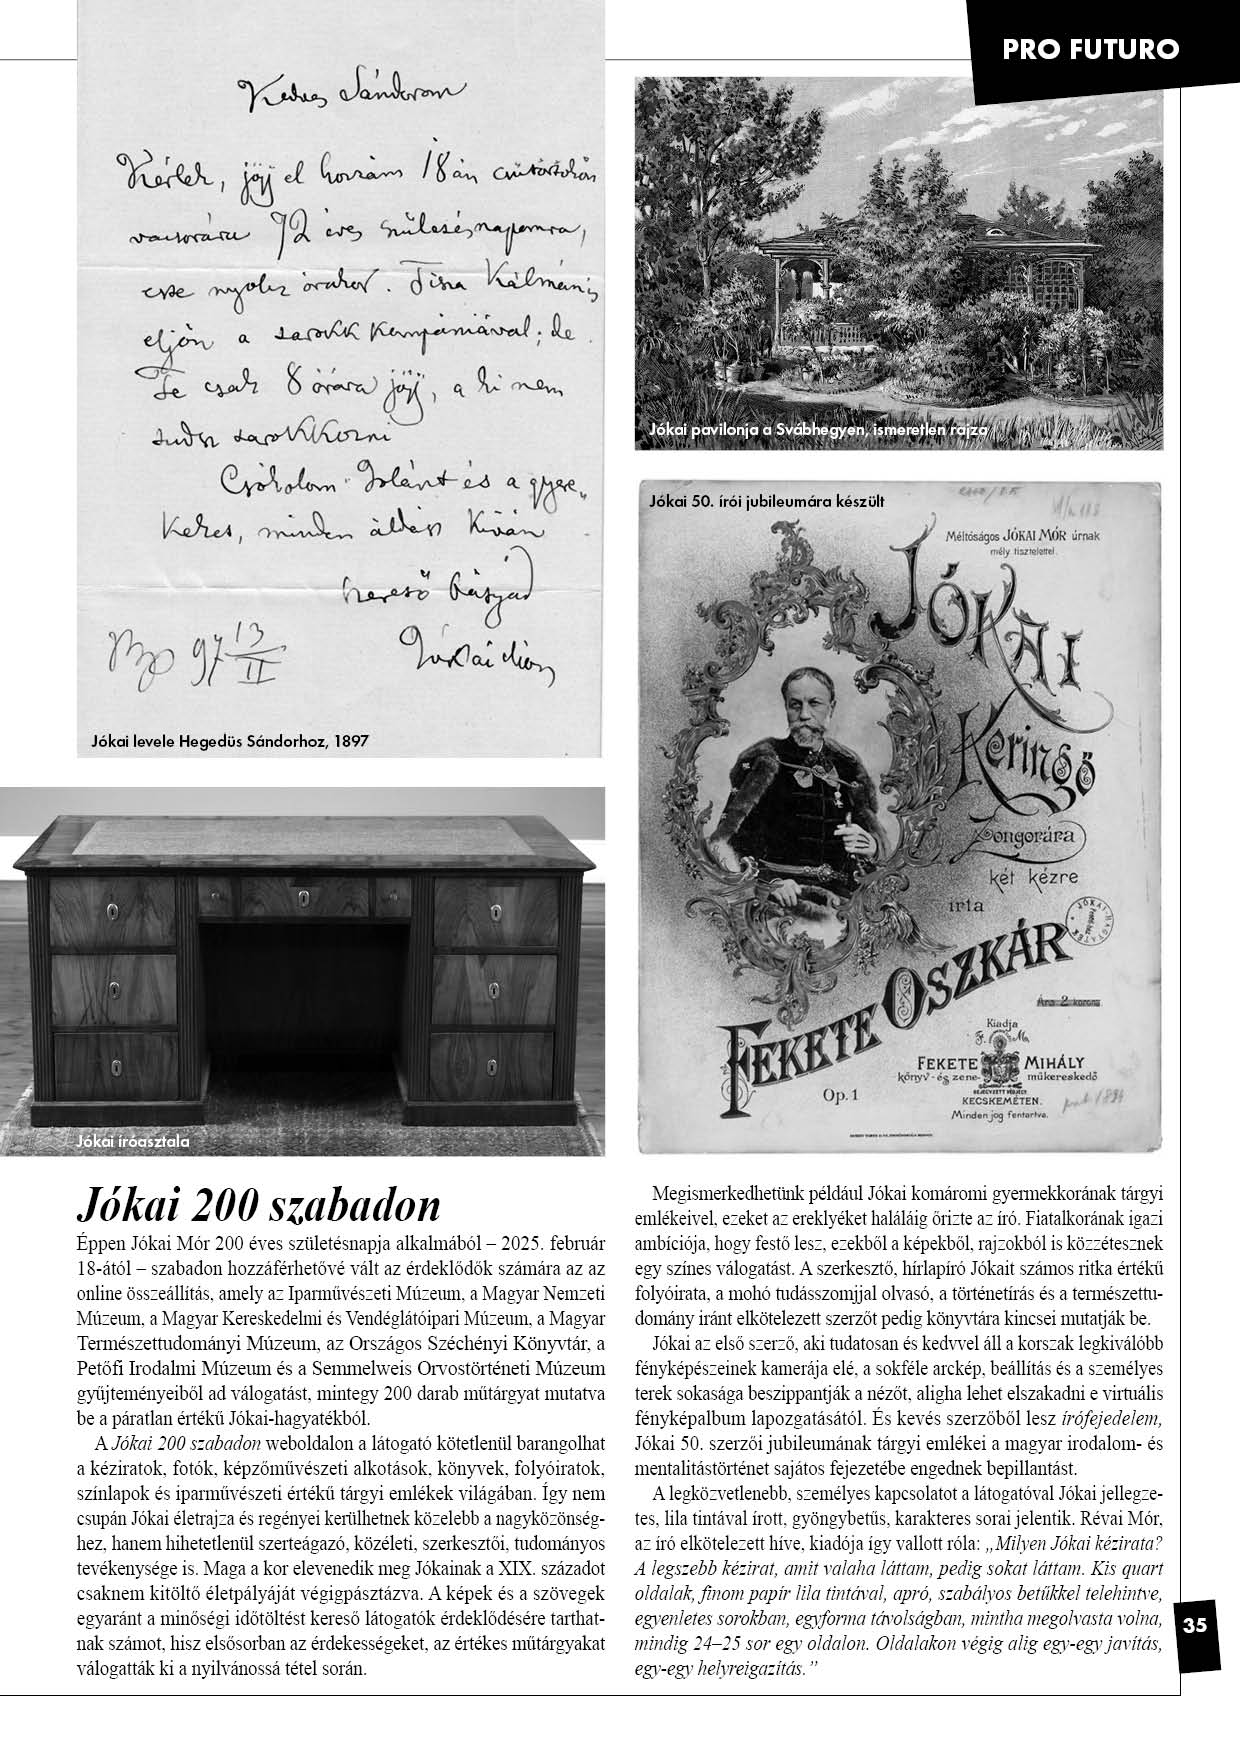 PRO FUTURO
Kedves Sándorom
Kérlek, jöjj el hozzám 18án csütörtökön
vacsorára 72 éves születésnapomra,
este nyolcz órakor. Tisza Kálmán is
eljön a sarokk kompániával; de
Te csak 8 órára jöjj, a ki nem
tudsz sarokkozni
Csókolom Jolánt és a gyere„
keket, minden áldást kíván
szerető bátyád
Jókai Mór
Bp 97 13/II
Jókai levele Hegedüs Sándorhoz, 1897
Jókai pavilonja a Svábhegyen, ismeretlen rajza
Jókai 50. írói jubileumára készült
Méltóságos JÓKAI MÓR úrnak
mély tisztelettel.
JÓKAI
Keringő
Zongorára
két kézre
írta
FEKETE OSZKÁR
Ára 2 korona
Op. 1
Kiadja
F. M.
FEKETE MIHÁLY
könyv- és zene- műkereskedő
KECSKEMÉTEN.
Minden jog fentartva.
Jókai íróasztala
Jókai 200 szabadon
Éppen Jókai Mór 200 éves születésnapja alkalmából – 2025. február
18-ától – szabadon hozzáférhetővé vált az érdeklődők számára az az
online összeállítás, amely az Iparművészeti Múzeum, a Magyar Nemzeti
Múzeum, a Magyar Kereskedelmi és Vendéglátóipari Múzeum, a Magyar
Természettudományi Múzeum, az Országos Széchényi Könyvtár, a
Petőfi Irodalmi Múzeum és a Semmelweis Orvostörténeti Múzeum
gyűjteményeiből ad válogatást, mintegy 200 darab műtárgyat mutatva
be a páratlan értékű Jókai-hagyatékból.
A Jókai 200 szabadon weboldalon a látogató kötetlenül barangolhat
a kéziratok, fotók, képzőművészeti alkotások, könyvek, folyóiratok,
színlapok és iparművészeti értékű tárgyi emlékek világában. Így nem
csupán Jókai életrajza és regényei kerülhetnek közelebb a nagyközönség-
hez, hanem hihetetlenül szerteágazó, közéleti, szerkesztői, tudományos
tevékenysége is. Maga a kor elevenedik meg Jókainak a XIX. századot
csaknem kitöltő életpályáját végigpásztázva. A képek és a szövegek
egyaránt a minőségi időtöltést kereső látogatók érdeklődésére tarthat-
nak számot, hisz elsősorban az érdekességeket, az értékes műtárgyakat
válogatták ki a nyilvánossá tétel során.
Megismerkedhetünk például Jókai komáromi gyermekkorának tárgyi
emlékeivel, ezeket az ereklyéket haláláig őrizte az író. Fiatalkorának igazi
ambíciója, hogy festő lesz, ezekből a képekből, rajzokból is közzétesznek
egy színes válogatást. A szerkesztő, hírlapíró Jókait számos ritka értékű
folyóirata, a mohó tudásszomjjal olvasó, a történetírás és a természettu-
domány iránt elkötelezett szerzőt pedig könyvtára kincsei mutatják be.
Jókai az első szerző, aki tudatosan és kedvvel áll a korszak legkiválóbb
fényképészeinek kamerája elé, a sokféle arckép, beállítás és a személyes
terek sokasága beszippantják a nézőt, aligha lehet elszakadni e virtuális
fényképalbum lapozgatásától. És kevés szerzőből lesz írófejedelem,
Jókai 50. szerzői jubileumának tárgyi emlékei a magyar irodalom- és
mentalitástörténet sajátos fejezetébe engednek bepillantást.
A legközvetlenebb, személyes kapcsolatot a látogatóval Jókai jellegze-
tes, lila tintával írott, gyöngybetűs, karakteres sorai jelentik. Révai Mór,
az író elkötelezett híve, kiadója így vallott róla: „Milyen Jókai kézirata?
A legszebb kézirat, amit valaha láttam, pedig sokat láttam. Kis quart
oldalak, finom papír lila tintával, apró, szabályos betűkkel telehintve,
egyenletes sorokban, egyforma távolságban, mintha megolvasta volna,
mindig 24–25 sor egy oldalon. Oldalakon végig alig egy-egy javítás,
egy-egy helyreigazítás.”
35